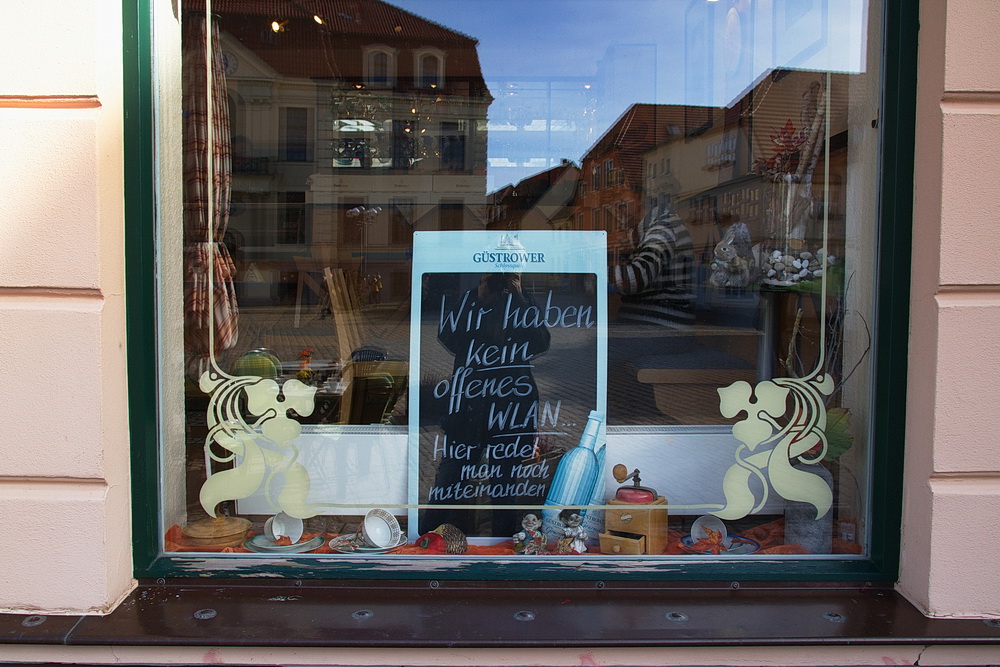 GÜSTROWER
Schlossquell
Wir haben
kein
offenes
WLAN...
Hier redet
man noch
miteinander